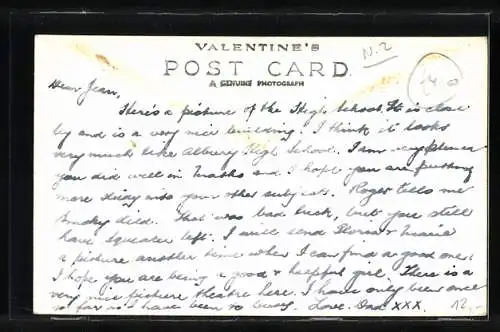 VALENTINE'S
N.Z
POST CARD
A GENUINE PHOTOGRAPH
Dear Jean,
Here's a picture of the High School. It is close
by and is a very nice building. I think it looks
very much like Albury High School. I am very pleased
you did well in Maths and I hope you are putting
more study into your other subjects. Roger tells me
Smoky died. That was bad luck, but you still
have Squeaker left. I will send Gloria & Marie
a picture another time when I can find a good one.
I hope you are being a good & helpful girl. There is a
very nice picture theatre here. I have only been once
so far as I have been so busy. Love. Dad XXX.
12